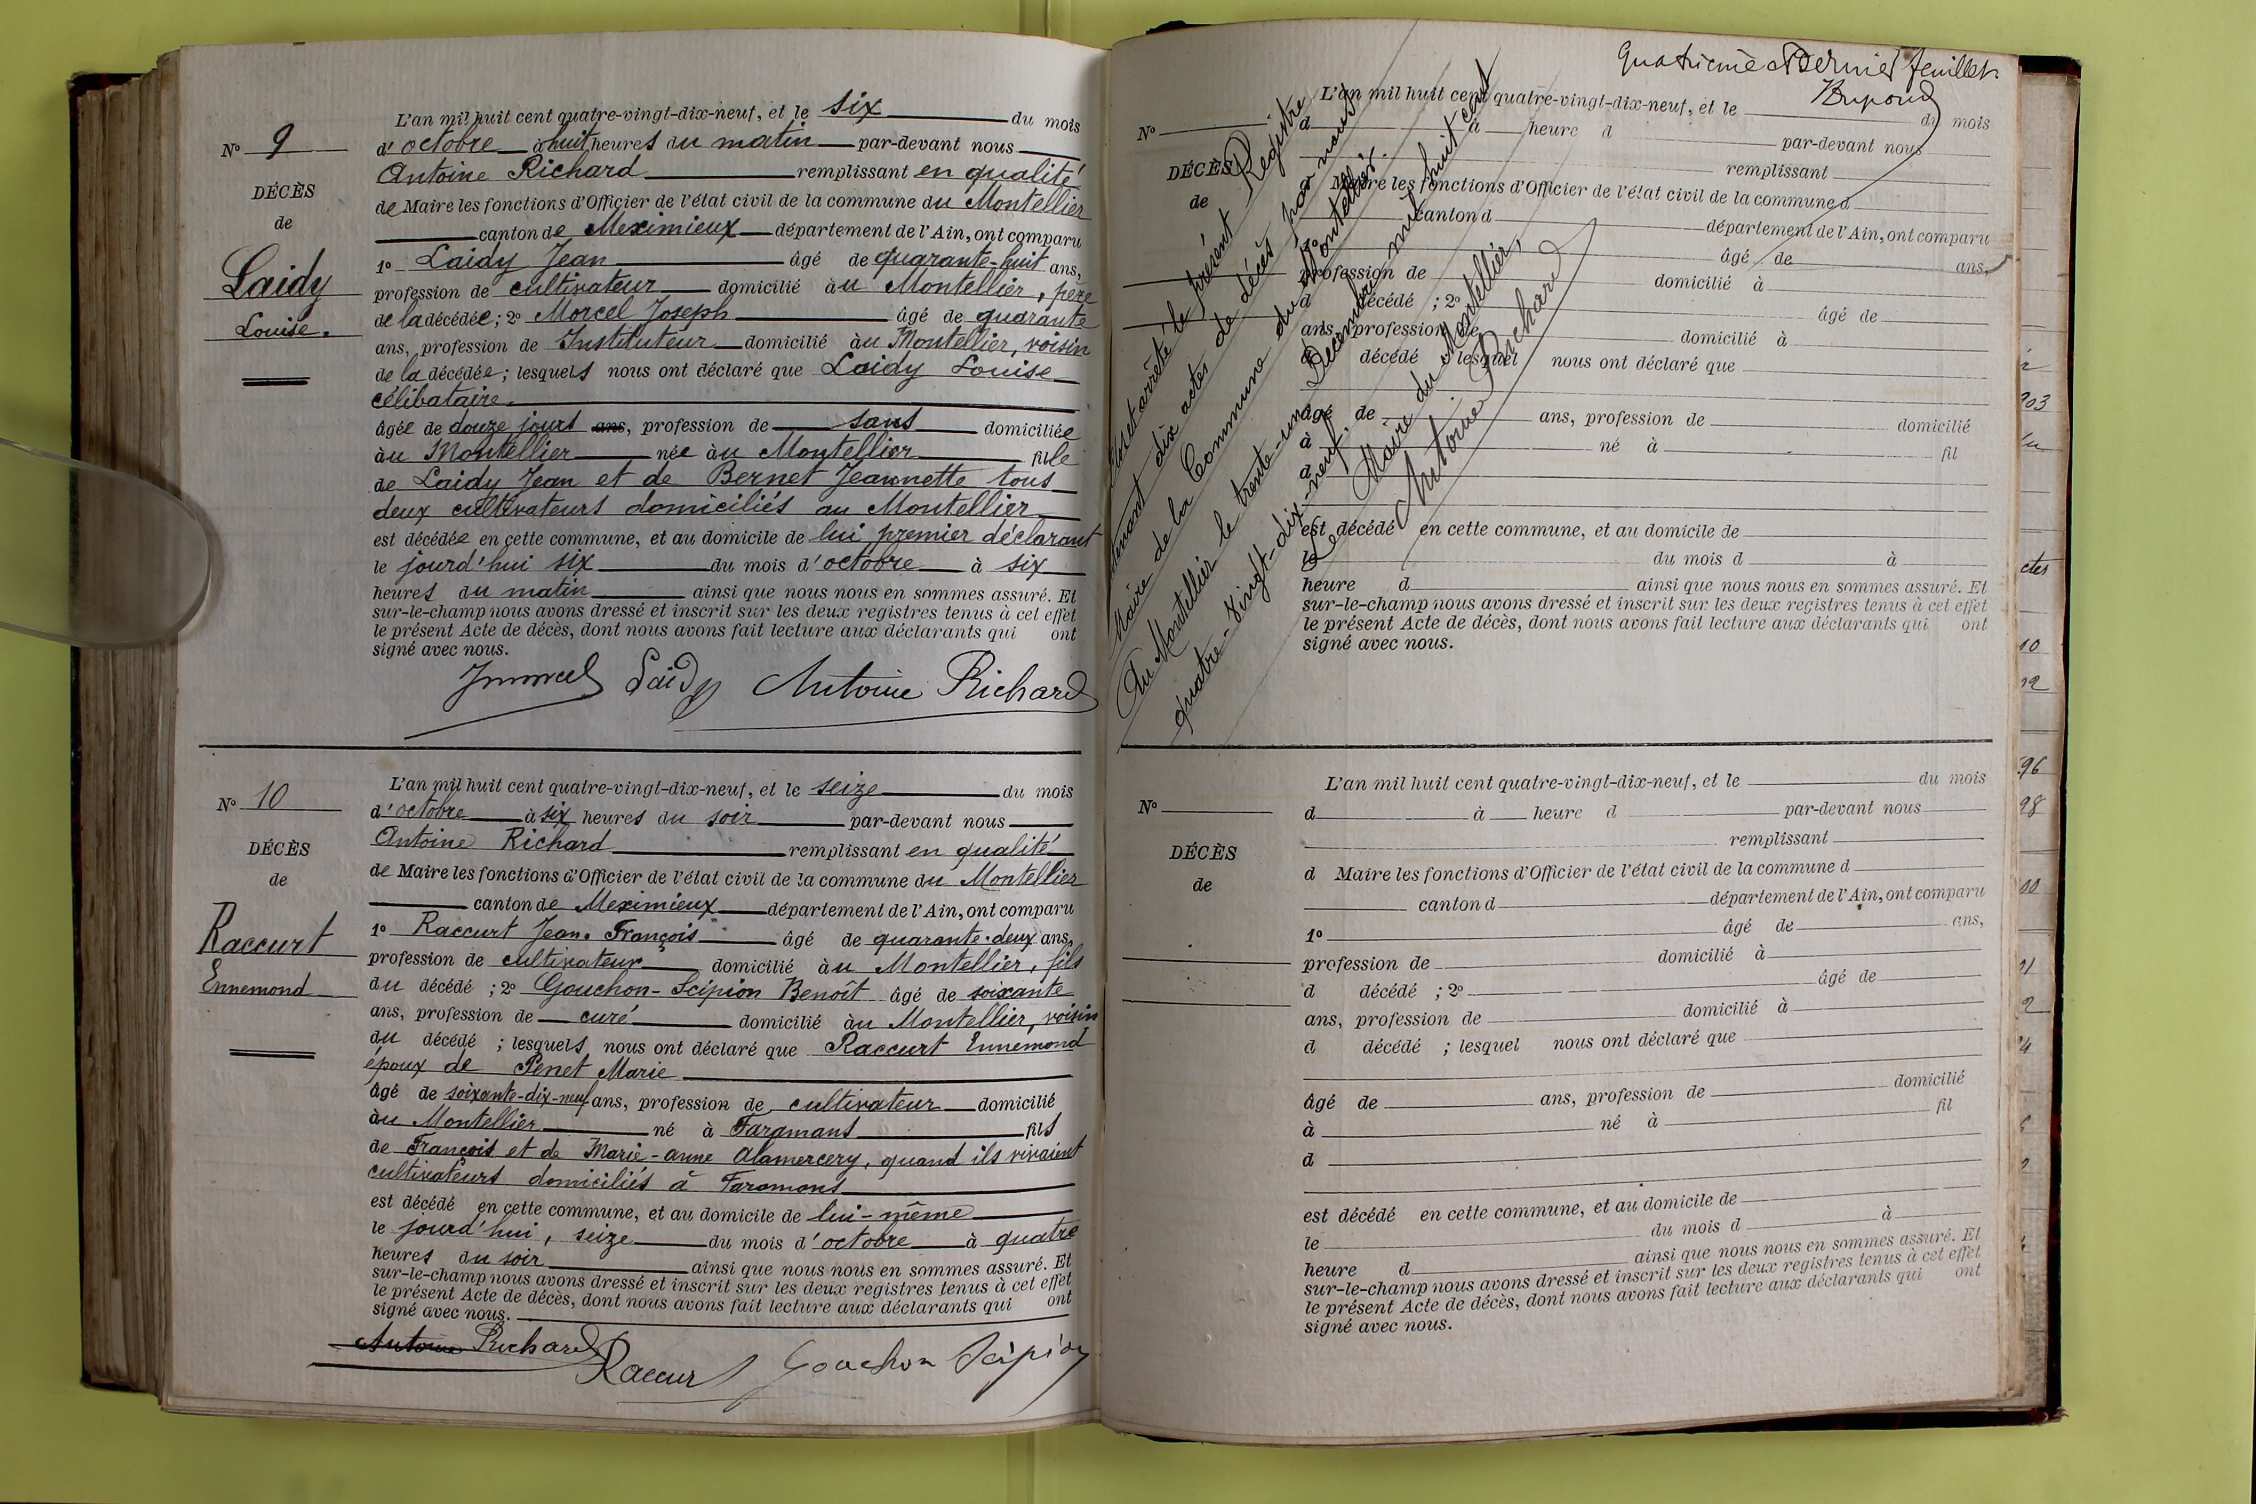 N° 9
DÉCÈS
de
Laidy
Louise.
L'an mil huit cent quatre-vingt-dix-neuf, et le six du mois
d'octobre à huit heures du matin par-devant nous
Antoine Richard remplissant en qualité
de Maire les fonctions d'Officier de l'état civil de la commune du Montellier
canton de Meximieux département de l'Ain, ont comparu
1° Laidy Jean âgé de quarante-huit ans,
profession de cultivateur domicilié àu Montellier, père
de la décédée ; 2° Morcel Joseph âgé de quarante
ans, profession de Instituteur domicilié àu Montellier, voisin
de la décédée ; lesquels nous ont déclaré que Laidy Louise
célibataire.
âgée de douze jours ans, profession de sans domiciliée
àu Montellier née àu Montellier file
de Laidy Jean et de Bernet Jeannette tous
deux cultivateurs domiciliés au Montellier
est décédée en cette commune, et au domicile de lui premier déclarant
le jourd'hui six du mois d'octobre à six
heures du matin ainsi que nous nous en sommes assuré. Et
sur-le-champ nous avons dressé et inscrit sur les deux registres tenus à cet effet
le présent Acte de décès, dont nous avons fait lecture aux déclarants qui ont
signé avec nous.
Jmorcel Laidy Antoine Richard
N° 10
DÉCÈS
de
Raccurt
Ennemond
L'an mil huit cent quatre-vingt-dix-neuf, et le seize du mois
d'octobre à six heures du soir par-devant nous
Antoine Richard remplissant en qualité
de Maire les fonctions d'Officier de l'état civil de la commune du Montellier
canton de Meximieux département de l'Ain, ont comparu
1° Raccurt Jean-François âgé de quarante-deux ans,
profession de cultivateur domicilié àu Montellier, fils
du décédé ; 2° Gouchon-Scipion Benoît âgé de soixante
ans, profession de curé domicilié àu Montellier, voisin
du décédé ; lesquels nous ont déclaré que Raccurt Ennemond
époux de Penet Marie
âgé de soixante-dix-neuf ans, profession de cultivateur domicilié
àu Montellier né à Faramans fils
de François et de Marie-anne Alamercery, quand ils vivaient
cultivateurs domiciliés à Faramans
est décédé en cette commune, et au domicile de lui-même
le jourd'hui, seize du mois d'octobre à quatre
heures du soir ainsi que nous nous en sommes assuré. Et
sur-le-champ nous avons dressé et inscrit sur les deux registres tenus à cet effet
le présent Acte de décès, dont nous avons fait lecture aux déclarants qui ont
signé avec nous.
Antoine Richard Raccurt Gouchon Scipion
Quatrième et Dernier feuillet.
N°
DÉCÈS
de
L'an mil huit cent quatre-vingt-dix-neuf, et le du mois
d à heure d par-devant nous
remplissant
d Maire les fonctions d'Officier de l'état civil de la commune d
canton d département de l'Ain, ont comparu
1° âgé de ans,
profession de domicilié à
d décédé ; 2° âgé de
ans, profession de domicilié à
d décédé ; lesquel nous ont déclaré que
âgé de ans, profession de domicilié
à né à fil
d
est décédé en cette commune, et au domicile de
le du mois d à
heure d ainsi que nous nous en sommes assuré. Et
sur-le-champ nous avons dressé et inscrit sur les deux registres tenus à cet effet
le présent Acte de décès, dont nous avons fait lecture aux déclarants qui ont
signé avec nous.
arrêté le présent Registre
dix actes de décès par nous
Maire de la Commune du Montellier.
Au Montellier le trente-un Décembre mil huit cent
quatre-vingt-dix-neuf.
Le Maire du Montellier,
Antoine Richard
N°
DÉCÈS
de
L'an mil huit cent quatre-vingt-dix-neuf, et le du mois
d à heure d par-devant nous
remplissant
d Maire les fonctions d'Officier de l'état civil de la commune d
canton d département de l'Ain, ont comparu
1° âgé de ans,
profession de domicilié à
d décédé ; 2° âgé de
ans, profession de domicilié à
d décédé ; lesquel nous ont déclaré que
âgé de ans, profession de domicilié
à né à fil
d
est décédé en cette commune, et au domicile de
le du mois d à
heure d ainsi que nous nous en sommes assuré. Et
sur-le-champ nous avons dressé et inscrit sur les deux registres tenus à cet effet
le présent Acte de décès, dont nous avons fait lecture aux déclarants qui ont
signé avec nous.